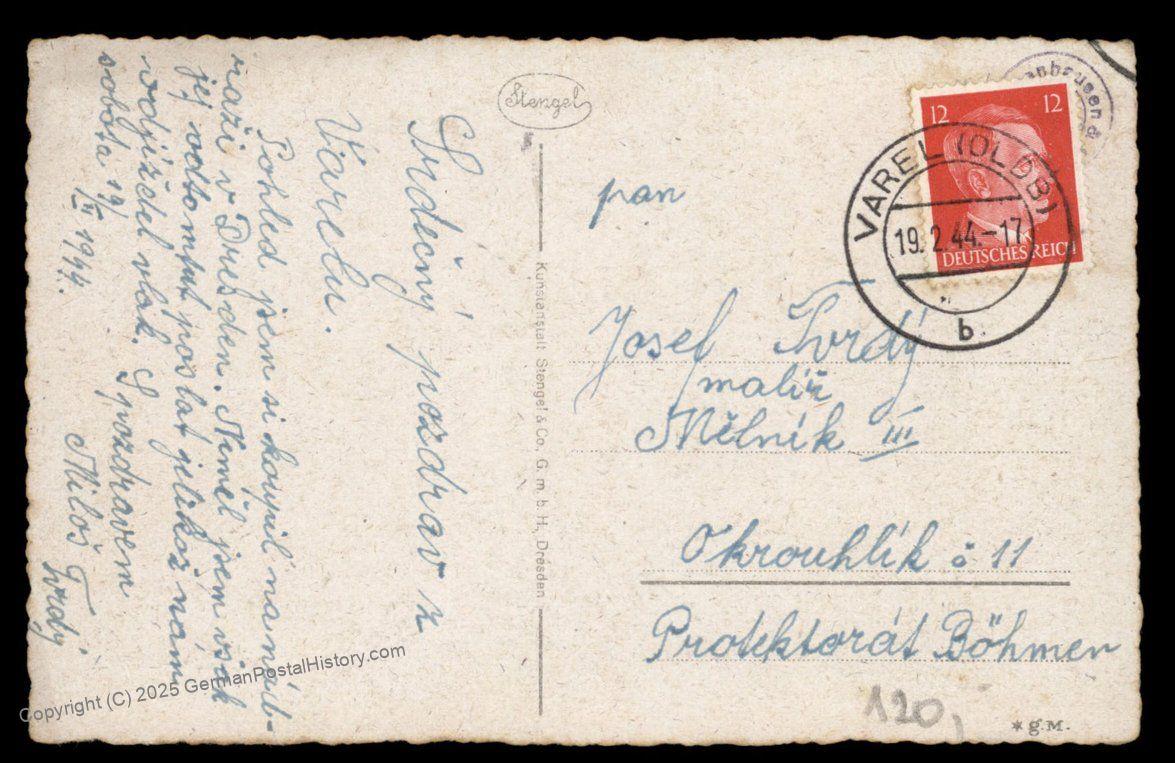 Srdečný pozdrav z
Varelu.
Pohled jsem si koupil na nád-
raží v Dresden. Neměl jsem však
jej odtamtud poslat jelikož nám
odjížděl vlak. S pozdravem
sobota 19/II 1944.
Miloš Tvrdý
Stengel
Kunstanstalt Stengel & Co. G. m. b. H., Dresden
pan
Josef Tvrdý
malíř
Mělník III
Okrouhlík č 11
Protektorát Böhmen
12 12
DEUTSCHES REICH
VAREL (OLDB)
19.2.44.-17
b
120,
* g.M.
Copyright (C) 2025 GermanPostalHistory.com